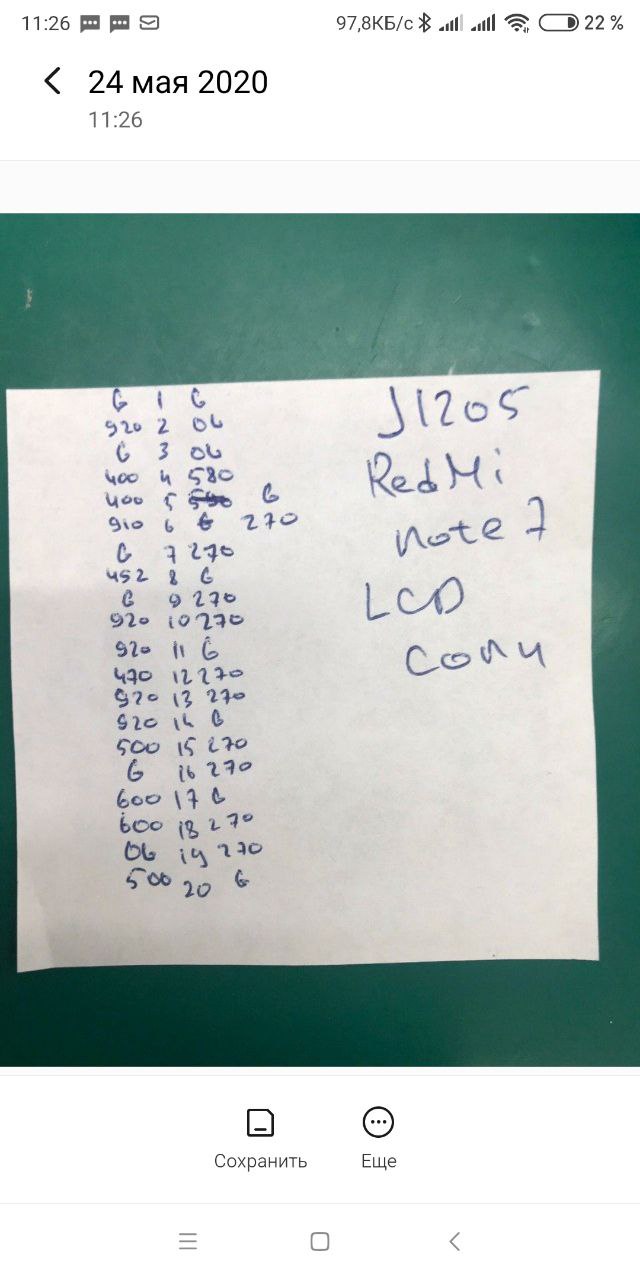 11:26
97,8КБ/с
22 %
24 мая 2020
11:26
G 1 G
920 2 OL
G 3 OL
400 4 580
400 5 G
910 6 270
G 7 270
452 8 G
G 9 270
920 10 270
920 11 G
470 12 270
920 13 270
920 14 G
500 15 270
G 16 270
600 17 G
600 18 270
OL 19 270
500 20 G
J1205
RedMi
note 7
LCD
Conn
Сохранить
Еще